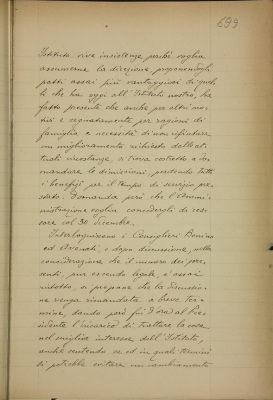 699
Istituto vive insistenze perchè voglia
assumerne la direzione, proponendogli
patti assai più vantaggiosi di quel-
li che ha oggi all'Istituto nostro, ha
fatto presente che anche per altri mo-
tivi e segnatamente per ragioni di
famiglia e necessità di non rifiutare
un miglioramento richiesto dalle at-
tuali circostanze, si trova costretto a do-
mandare le dimissioni, perdendo tutti
i benefizi per il tempo di servizio pre-
stato. Domanda però che l'Ammi-
nistrazione voglia concedergli di ces-
sare col 30 Dicembre.
Interloquiscono i Consiglieri Bonino
ed Avenati, e dopo discussione, nella
considerazione che il numero dei pre-
senti, pur essendo legale, è assai
ridotto, si propone che la discussio-
ne venga rimandata a breve ter-
mine, dando però fin d'ora al Pre-
sidente l'incarico di trattare la cosa
nel miglior interesse dell'Istituto,
anche sentendo se ed in quali termini
si potrebbe evitare un cambiamento